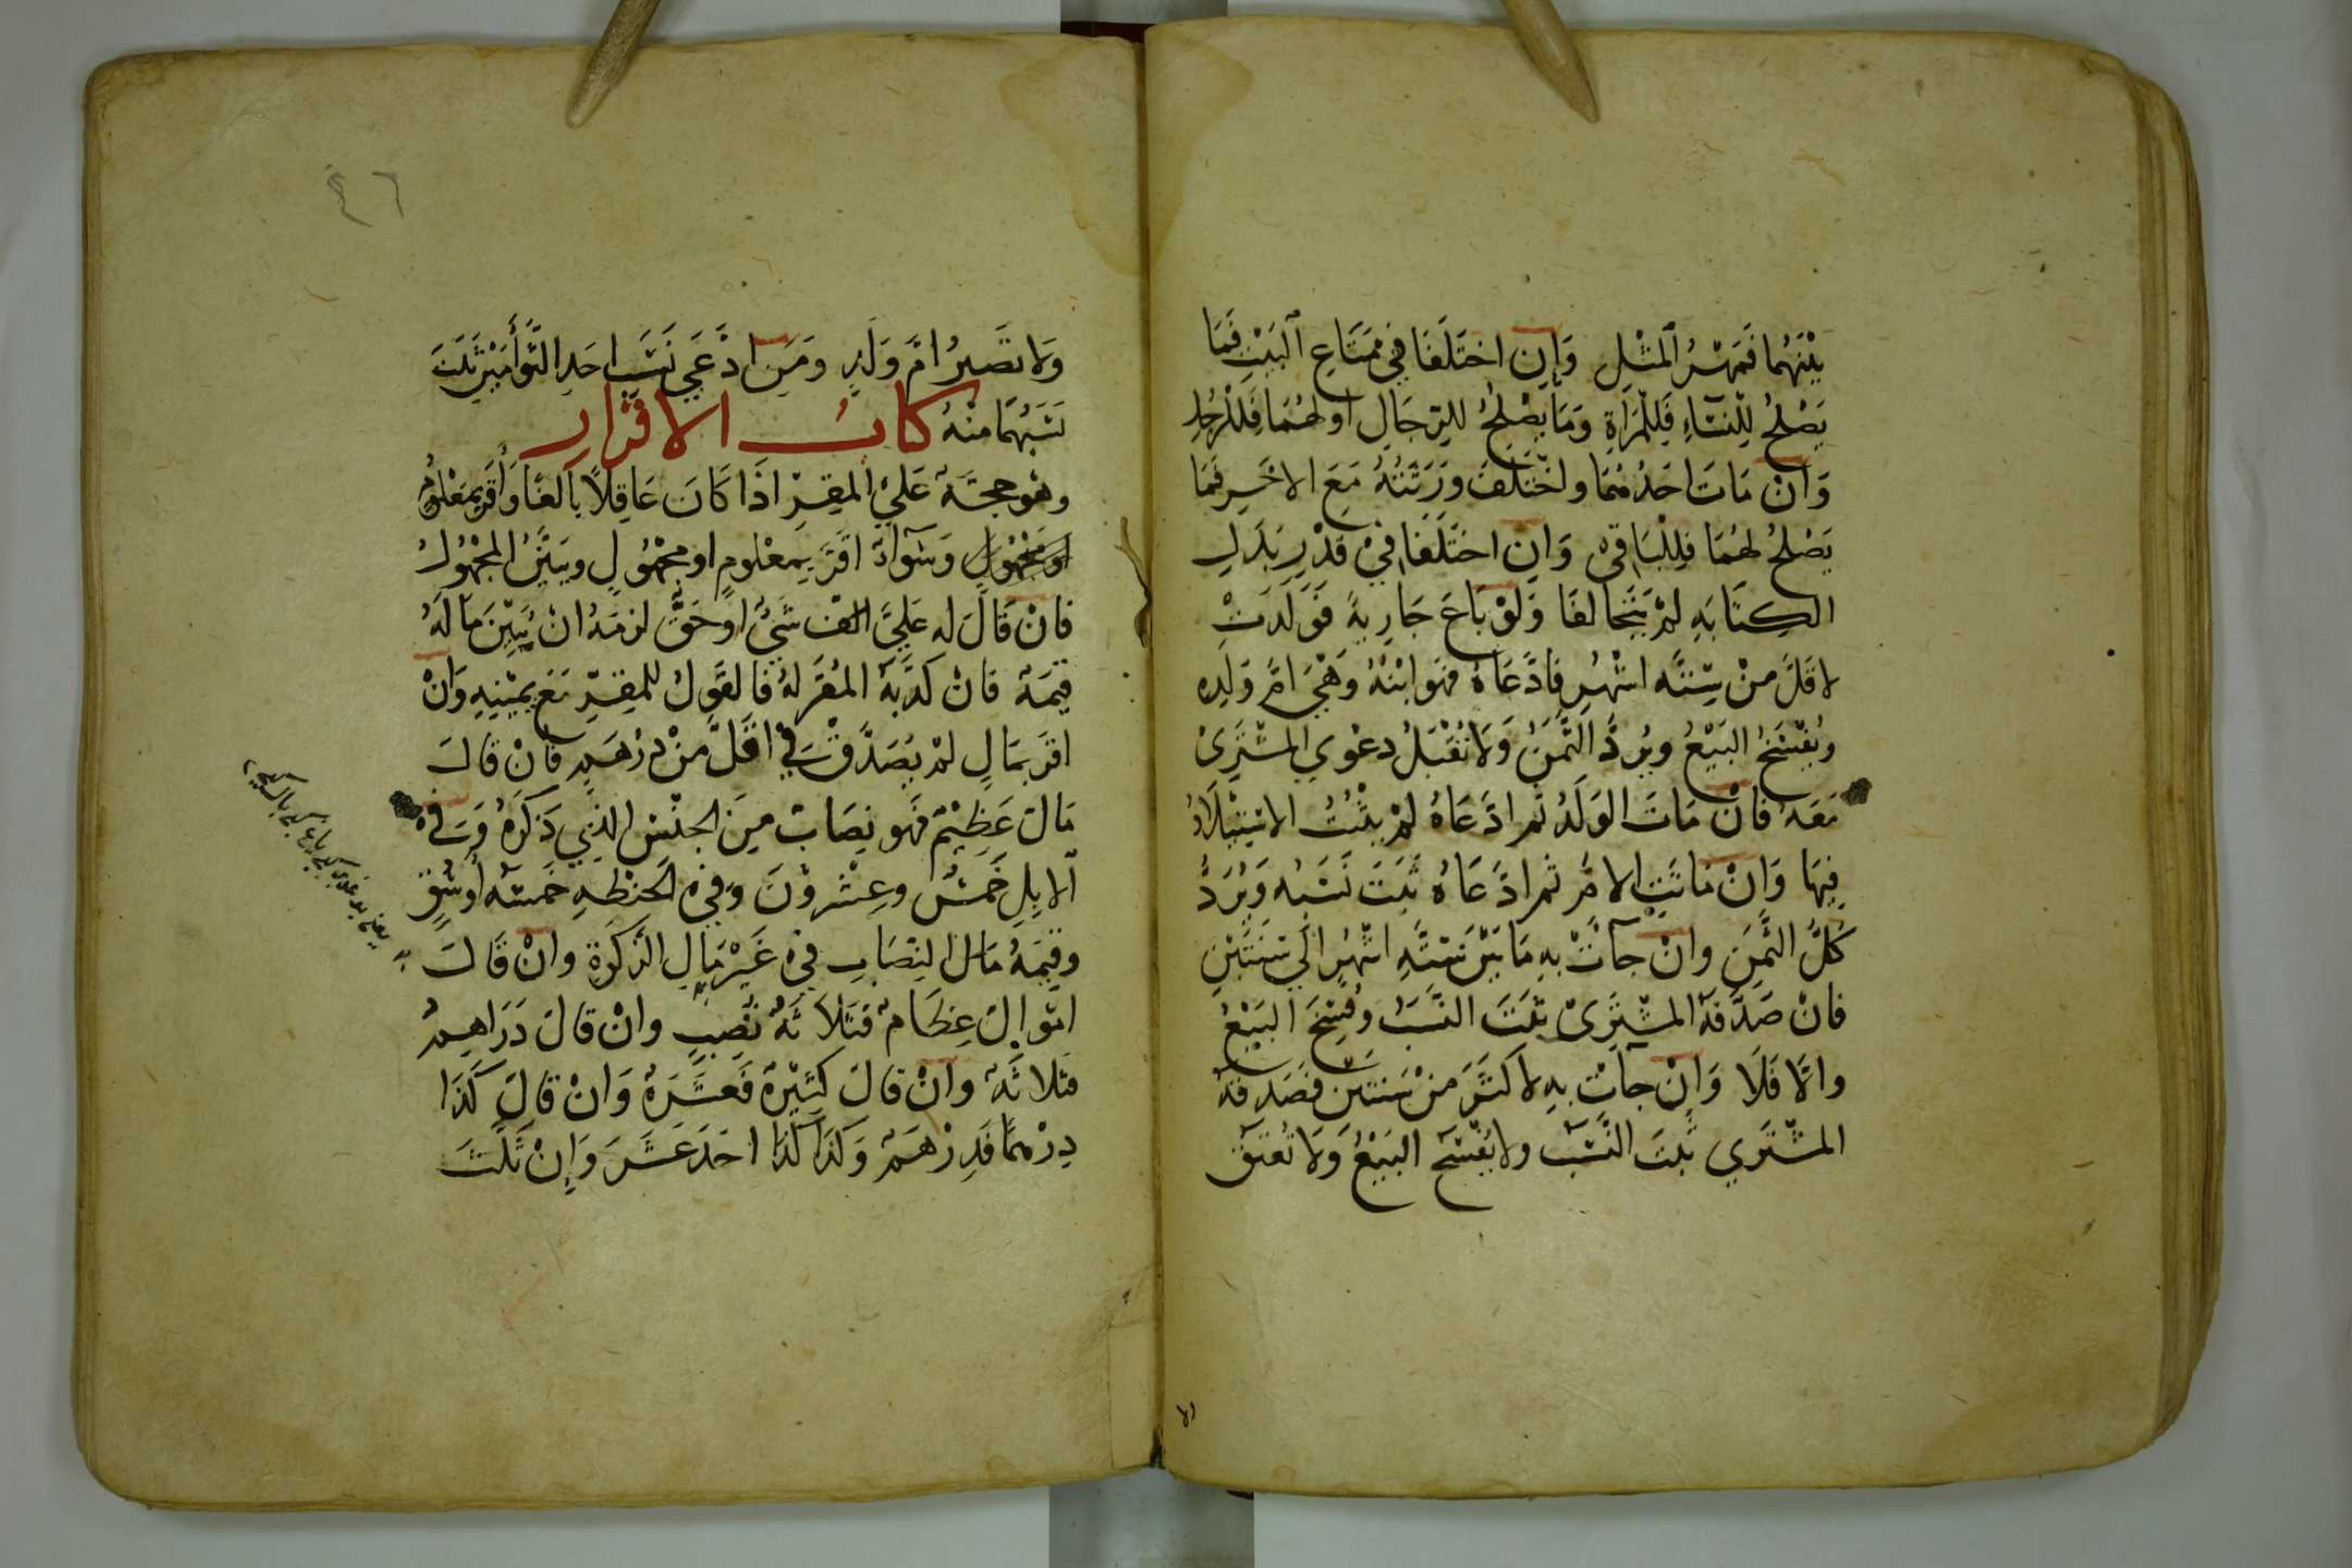 بَيْنَهُمَا فَمَهْرُ الْمِثْلِ وَاِنِ اخْتَلَفَا فِي مَتَاعِ الْبَيْتِ فَمَا
يَصْلُحُ لِلنِّسَاءِ فَلِلْمَرْاَةِ وَمَا يَصْلُحُ لِلرِّجَالِ اَوْ لَهُمَا فَلِلرَّجُلِ
وَاِنْ مَاتَ اَحَدُهُمَا وَاخْتَلَفَ وَرَثَتُهُ مَعَ الاٰخَرِ فَمَا
يَصْلُحُ لَهُمَا فَلِلْبَاقِي وَاِنِ اخْتَلَفَا فِي قَدْرِ بَدَلِ
الكِتَابَةِ لَمْ يَتَحَالَفَا وَلَوْ بَاعَ جَارِيَةً فَوَلَدَتْ
لاَقَلَّ مِنْ سِتَّةِ اشْهُرٍ فَادَّعَاهُ فَهُوَ ابْنُهُ وَهِيَ امُّ وَلَدِهِ
وَيُفْسَخُ البَيْعُ وَيُرَدُّ الثَّمَنُ وَلَا تُقْبَلُ دَعْوَي المُشْتَرِيْ
مَعَهُ فَانْ مَاتَ الوَلَدُ ثم ادَّعَاهُ لَمْ يَثْبُتِ الاسْتِيْلَادُ
فِيهَا وَاِنْ مَاتَتِ الامُّ ثم ادَّعَاهُ ثَبَتَ نَسَبُه وَيُرَدُّ
كُلُّ الثَّمَنِ وانْ جآتْ بِهِ مَا بَيْنَ سِتَّةِ اشْهُرٍ اِلَي سَنَتَيْنِ
فانْ صَدَّقَهُ المُشْتَرِيْ ثَبَتَ النَّسَبُ وَفُسِخَ البَيْعُ
وَاِلَّا فَلَا وَاِنْ جآتْ بِهِ لاكثَرَ مِنْ سَنَتَيْنِ فَصَدَّقَهُ
المُشْتَرِي ثَبَتَ النَّسَبُ ولا يُفْسَخُ البَيْعُ وَلَا تُعْتَقُ
٤٦
وَلَا تَصِيرُ امَّ وَلَدٍ وَمَنِ ادَّعَي نَسَبَ احَدِ التَّوْأَمَيْنِ ثَبَتَ
نَسَبُهُمَا مِنْهُ كتابُ الاقرار
وهُوَ حجَّةٌ عَلَي المُقِرِّ اذَا كَانَ عَاقِلًا بَالغًا وَاَقَرَّ بِمَعْلُومٍ
او مَجْهُولٍ وَسَوآءٌ اقَرَّ بِمَعْلُومٍ او مَجْهُولٍ وَيُبَيِّنُ المَجْهُولَ
فانْ قَالَ لَه عَلَيَّ شَيْءٌ اوْ حَقٌّ لزمَهُ انْ يُبَيِّنَ مَا لَهُ
قِيمَةٌ فَانْ كَذَّبَهُ المُقَرُّ لَهُ فَالقَوْلُ لِلمُقِرِّ مَعَ يَمِيْنِهِ وَاِنْ
اقَرَّ بِمَالٍ لَمْ يُصَدَّقْ فِي اقَلَّ مِنْ دِرْهَمٍ فَانْ قَالَ
مَالٌ عَظِيْمٌ فَهُوَ نِصَابٌ مِنَ الجِنْسِ الذِي ذَكَرَهُ وَفِي
الابِلِ خَمْسٌ وعِشْرُوْنَ وَفِي الحِنْطَةِ خَمْسَةُ اَوْسُقٍ
وَقِيمَةُ مَال النِّصَابِ فِي غَيْرِ مَالِ الزَّكَوةِ وانْ قَالَ
امْوَالٌ عِظَامٌ فَثَلاثَةُ نُصُبٍ وانْ قَالَ دَرَاهِمُ
فَثَلاثَةٌ وانْ قَالَ كَثِيْرَةٌ فَعَشَرَةٌ وَانْ قَالَ كَذَا
دِرْهَمًا فَدِرْهَمٌ وَكَذَا كَذَا احَدَ عَشَرَ وَاِنْ ثَلَّثَ